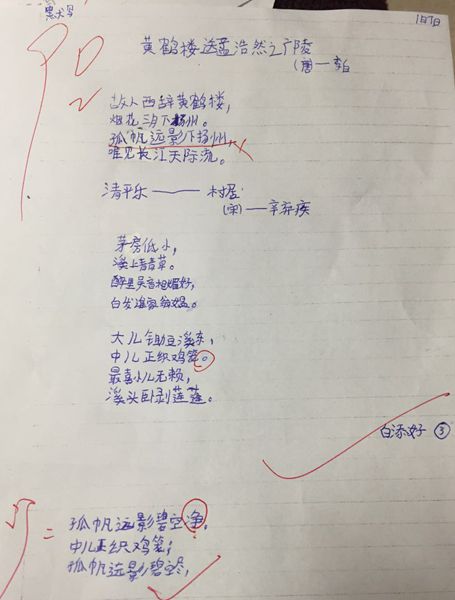 默古字
1月7日
黄鹤楼送孟浩然之广陵
(唐)一李白
故人西辞黄鹤楼,
烟花三月下扬州。
孤帆远影下扬州,
唯见长江天际流。
清平乐——村居
(宋)一辛弃疾
茅房低小,
溪上青青草。
醉里吴音相媚好,
白发谁家翁媪。
大儿锄豆溪东,
中儿正织鸡笼。
最喜小儿无赖,
溪头卧剥莲蓬。
白添好 ③
二
孤帆远影碧空净,
中儿正织鸡笼;
孤帆远影碧空尽,